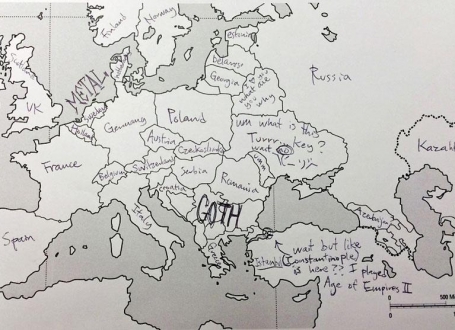 Finland
Norway
estonia
Belarus
Georgia
what are
you
why
Russia
METAL
UK
Germany
Poland
um what is this
Turrr key?
wait no
France
Austria
Czechoslovakia
Belgium
Switzerland
Serbia
Croatia
Rumania
Italy
Spain
GOTH
Greece
Kazakh
Azerbaijan
Istanbul
wait but like
(Constantinople)
is here?? I played
Age of Empires II
0
500 M
0